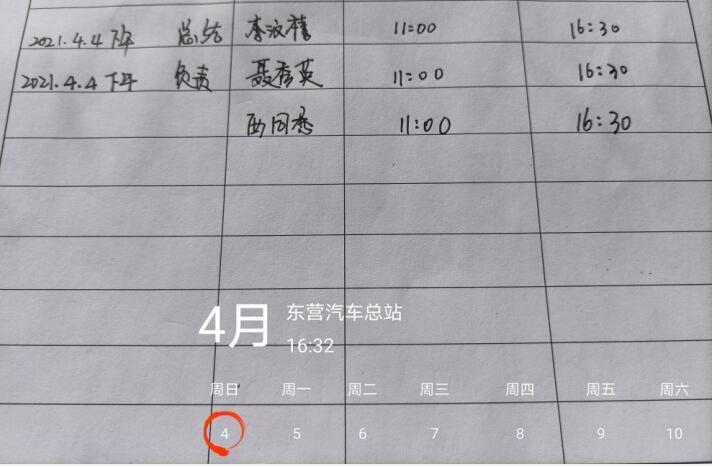 2021.4.4下午 总结 李波禧 11:00 16:30
2021.4.4下午 负责 聂秀英 11:00 16:30
11:00 16:30
4月 东营汽车总站
16:32
周日 周一 周二 周三 周四 周五 周六
4 5 6 7 8 9 10